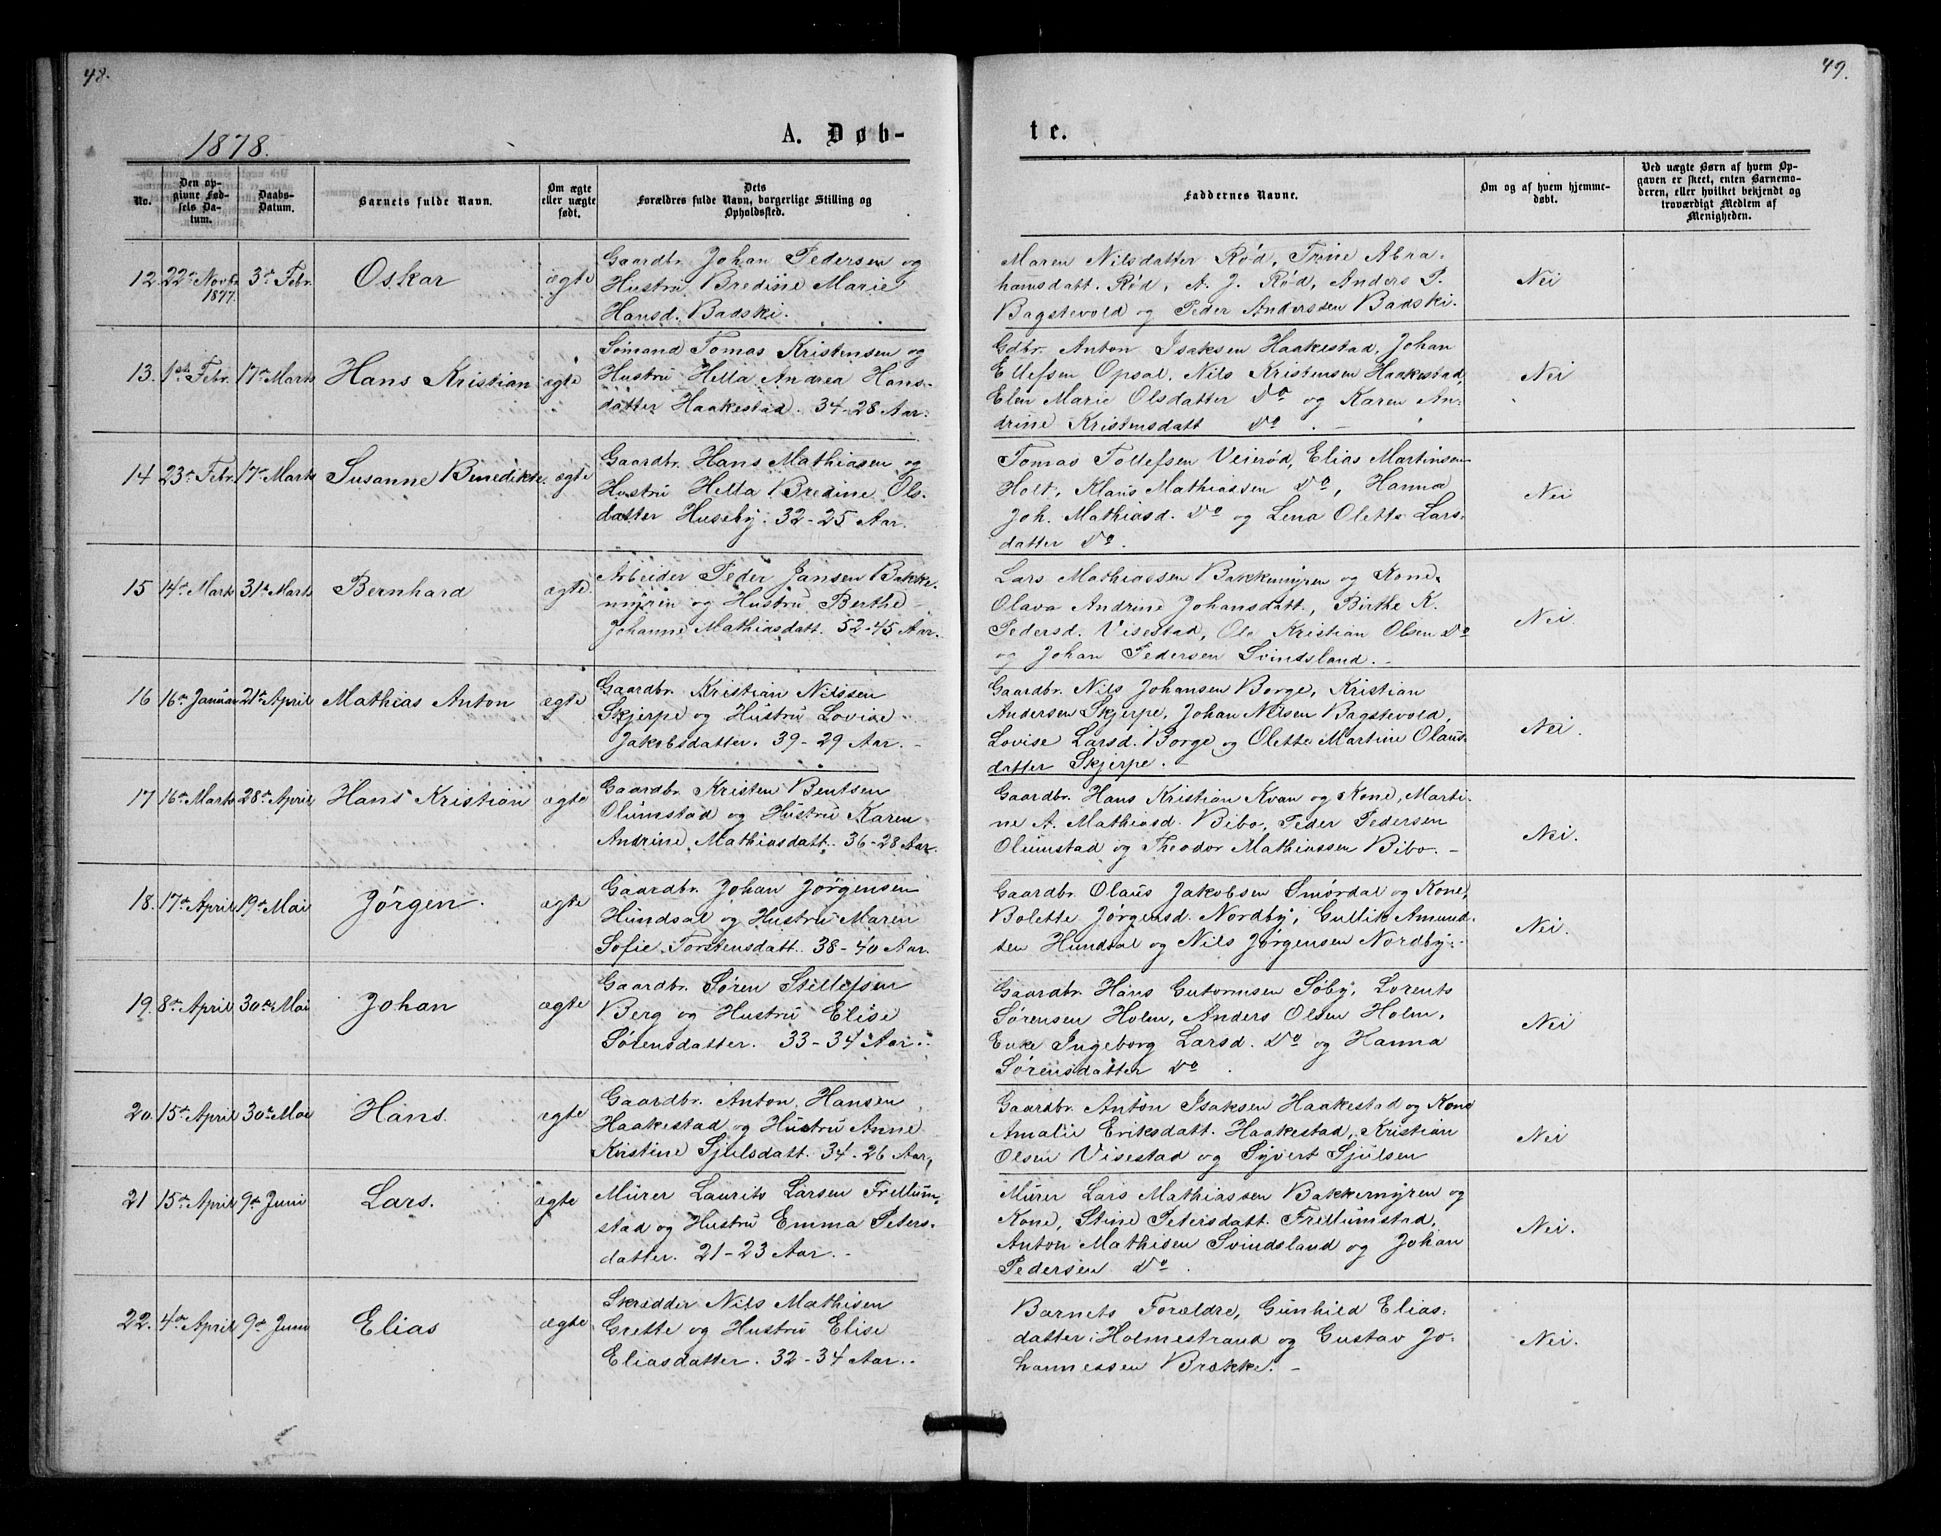 48.
1878.
A. Døb-
No.
Den op-
givne Fød-
sels Da-
tum.
Daabs-
Datum.
Barnets fulde Navn.
Om ægte
eller uægte
født.
Dets
Forældres fulde Navn, borgerlige Stilling og
Opholdssted.
12. 22de Novbr 1877. 3de Febr. Oskar ægte
Gaardbr. Johan Pedersen og
Hustru Bredine Marie
Hansd. Badski.
13. 1ste Febr. 17de Marts Hans Kristian ægte
Sømand Tomas Kristensen og
Hustru Hella Andrea Hans-
datter Haakestad. 34-28 Aar.
14 23de Febr. 17de Marts Susanne Benedikte. ægte
Gaardbr. Hans Mathiasen og
Hustru Hella Bredine Ols-
datter Huseby. 32-25 Aar.
15 14de Marts 31te Marts Bernhard ægte.
Arbeider Peder Jansen Bakke-
myren og Hustru Berthe
Johanne Mathiasdatt. 52-45 Aar.
16 16de Januar 21de April Mathias Anton ægte
Gaardbr. Kristian Nilssen
Skjerpe og Hustru Lovise
Jakobsdatter. 39-29 Aar.-
17 16de Marts 28de April Hans Kristian ægte
Gaardbr. Kristen Bentsen
Olumstad og Hustru Karen
Andrine Mathiasdatt. 36-28 Aar.
18. 17de April 19de Mai Jørgen. ægte
Gaardbr. Johan Jørgensen
Hundsal og Hustru Maren
Sofie Torstensdatt. 38-40 Aar.
19. 8de April 30te Mai Johan ægte
Gaardbr. Søren Stillefsen
Berg og Hustru Elise
Sørensdatter. 33-34 Aar.
20. 15de April 30te Mai Hans. ægte
Gaardbr. Anton Hansen
Haakestad og Hustru Anne
Kirstine Sjulsdatt. 34-26 Aar.
21 15de April 9de Juni Lars. ægte
Murer Laurits Larsen Frellum-
stad og Hustru Emma Peters-
datter. 21-23 Aar.-
22. 4de April 9de Juni Elias ægte
Skrædder Nils Mathisen
Grette og Hustru Elise
Eliasdatter. 32-34 Aar.
49.
te.
Faddernes Navne.
Om og af hvem hjemme-
døbt.
Ved uægte Børn af hvem Op-
gaven er skeet, enten Barnemo-
deren, eller hvilket bekjendt og
troværdigt Medlem af
Menigheden.
Maren Nilsdatter Rød, Trine Abra-
hamsdatt. Rød, A. J. Rød, Anders P.
Bagstevold og Peder Anderssen Badski.
Nei
Gdbr. Anton Isaksen Haakestad, Johan
Ellefsen Opsal, Nils Kristensen Haakestad,
Elen Marie Olsdatter Do og Karen An-
drine Kristensdatt Do.-
Nei
Tomas Tollefsen Veierød, Elias Martinsen
Holt, Klaus Mathiassen Do, Hanna
Joh. Mathiasd. Do og Lena Olette Lars-
datter Do.
Nei
Lars Mathiassen Bakkemyren og Kone
Olava Andrine Johansdatt., Birthe K.
Pedersd. Visestad, Ole Kristian Olsen Do
og Johan Pedersen Svindsland.-
Nei.
Gaardbr. Nils Johansen Borge, Kristian
Andersen Skjerpe, Johan Nilsen Bagstevold,
Lovise Larsd. Borge og Olette Martine Olaus-
datter Skjerpe.-
Nei.
Gaardbr. Hans Kristian Kvan og Kone, Marti-
ne A. Mathiasd. Bibo, Peder Pedersen
Olumstad og Theodor Mathiassen Bibo.-
Nei.
Gaardbr. Olaus Jakobsen Smørdal og Kone,
Bolette Jørgensd. Nordby, Gullik Amund-
sen Hundsal og Nils Jørgensen Nordby.-
Nei.
Gaardbr. Hans Gutormsen Søby, Lorents
Sørensen Holm, Anders Olsen Holm,
Enke Ingeborg Larsd. Do og Hanna
Sørensdatter Do.
Nei
Gaardbr. Anton Isaksen Haakestad og Kone
Amalie Eriksdatt. Haakestad, Kristian
Olsen Visestad og Syvert Sjulsen
Nei
Murer Lars Mathiassen Bakkemyren og
Kone, Stine Petersdatt. Frellumstad,
Anton Mathisen Svindsland og Johan
Pedersen Do.
Nei.
Barnets Forældre, Gunhild Elias-
datter Holmestrand og Gustav Jo-
hannessen Brække.-
Nei.